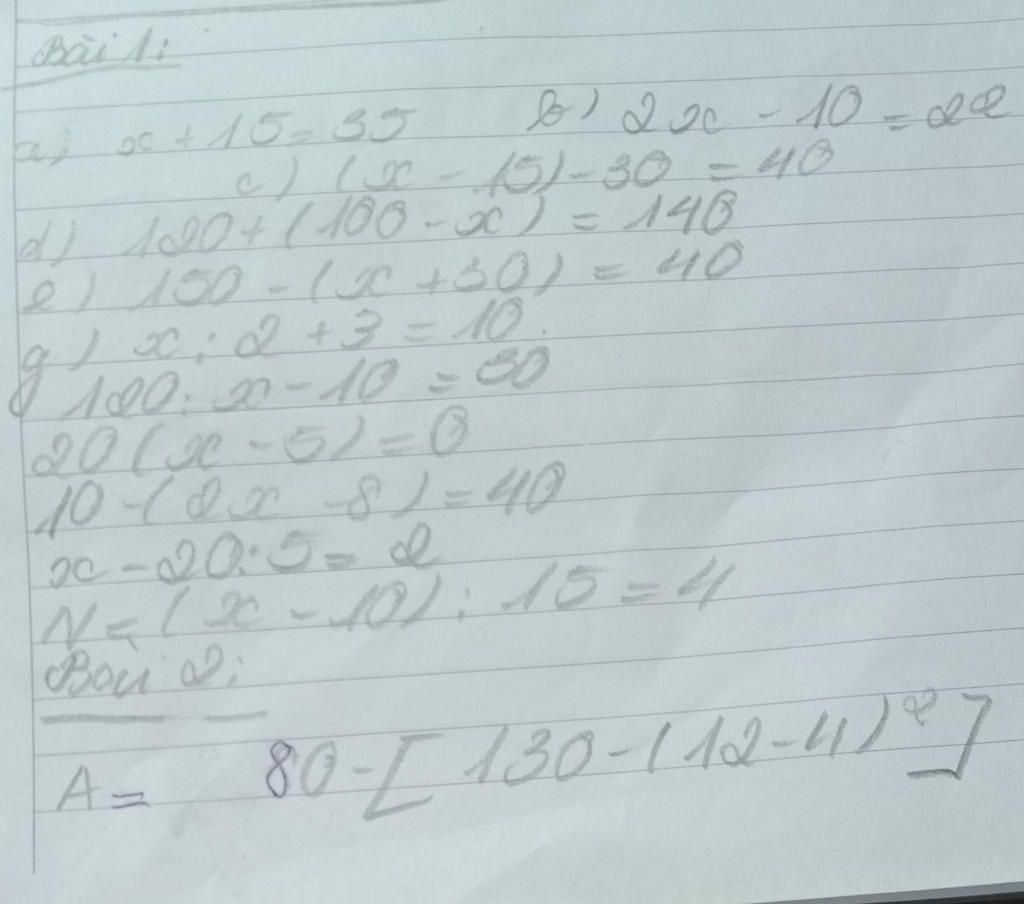 Bài 1:
a) x + 15 = 35 b) 2x - 10 = 22
c) (x - 15) - 30 = 40
d) 120 + (100 - x) = 140
e) 150 - (x + 30) = 40
g) x : 2 + 3 = 10.
120 : x - 10 = 30
20 (x - 5) = 0
10 - (2x - 8) = 40
x - 20 : 5 = 2
N = (x - 10) : 15 = 4
Bài 2:
A = 80 - [130 - (12 - 4)²]